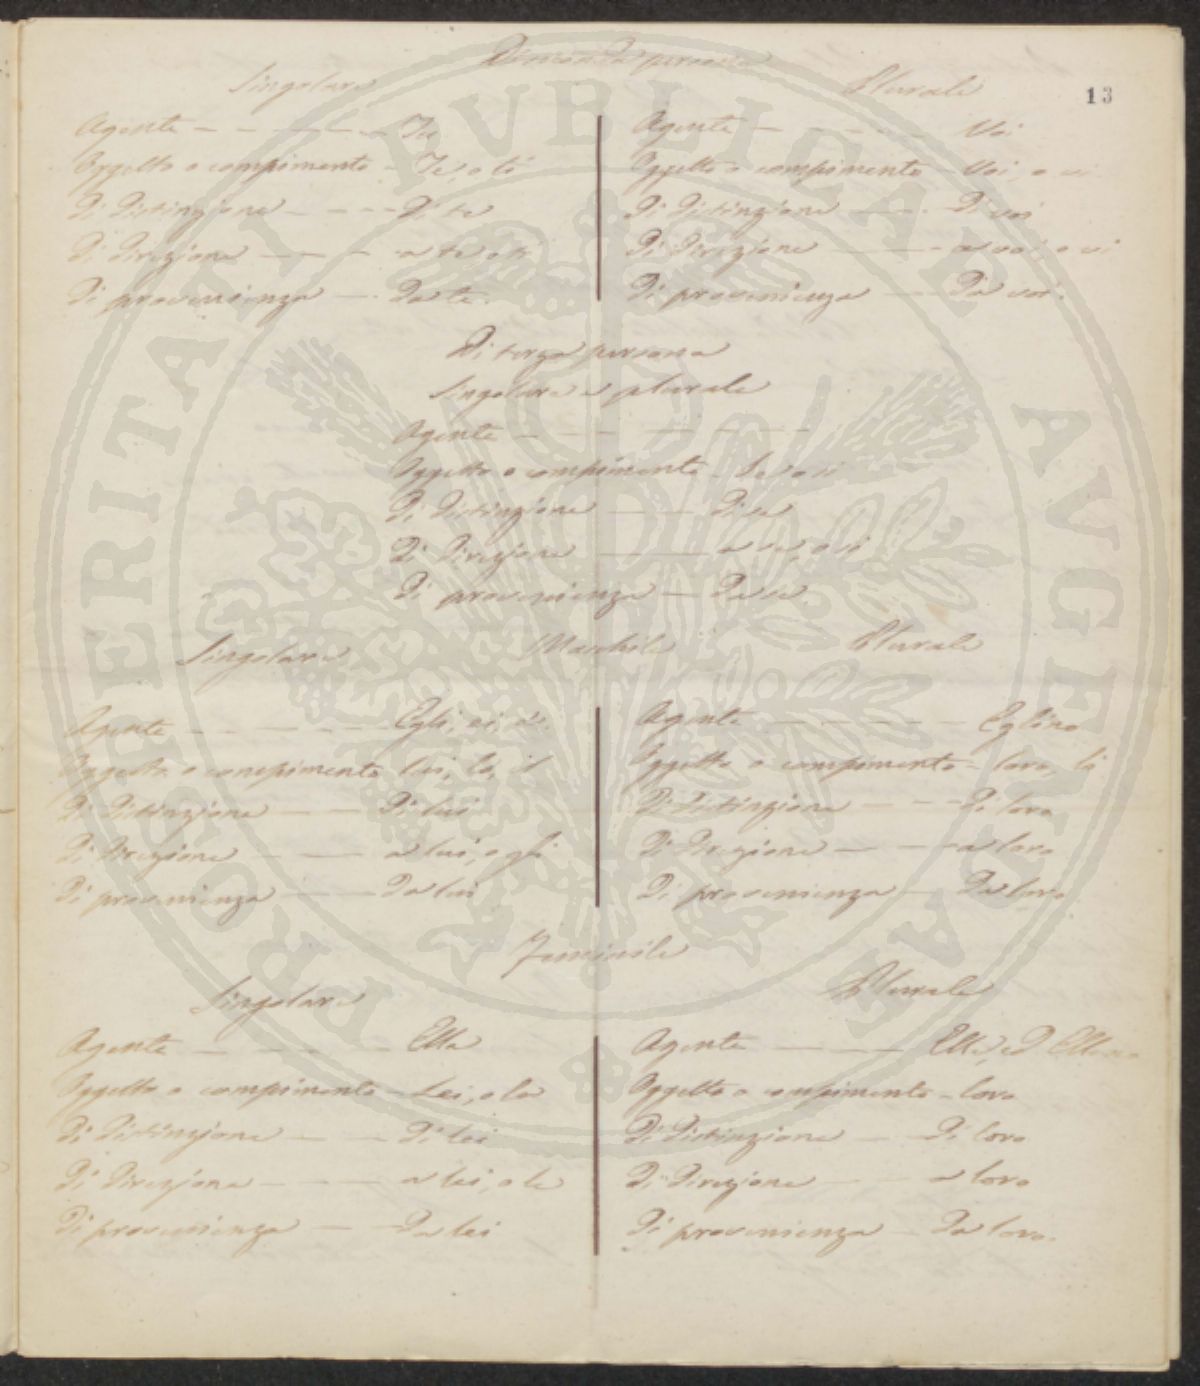 Di seconda persona
Singolare Plurale 13
Agente - - - - - Tu Agente - - - - Voi
Oggetto o compimento - Te, o ti Oggetto o compimento - Voi, o vi
Di distinzione - - - Di te Di distinzione - - Di voi
Di direzione - - - a te, o ti Di direzione - - - a voi, o vi
Di provenienza - - Da te. Di provenienza - Da voi.
Di terza persona
Singolare e plurale
Agente - - - - - -
Oggetto o compimento - Se, o si
Di distinzione - - Di se
Di direzione - - a se, o si
Di provenienza - Da se.
Singolare Maschile Plurale
Agente - - - - - Egli, ei, e'. Agente - - - - - Eglino
Oggetto o compimento lui, lo, il Oggetto o compimento - loro, li
Di distinzione - - Di lui Di distinzione - - - Di loro
Di direzione - - a lui, o gli Di direzione - - - a loro
Di provenienza - - Da lui Di provenienza - Da loro
Feminile
Singolare Plurale
Agente - - - - Ella Agente - - - Elle, ed Elleno
Oggetto o compimento - Lei, o la Oggetto o compimento - loro
Di distinzione - - Di lei Di distinzione - - Di loro
Di direzione - - - a lei, o le Di direzione - - a loro
Di provenienza - - Da lei Di provenienza - Da loro.
PROSPERITATI PVBLICAE AVGENDAE